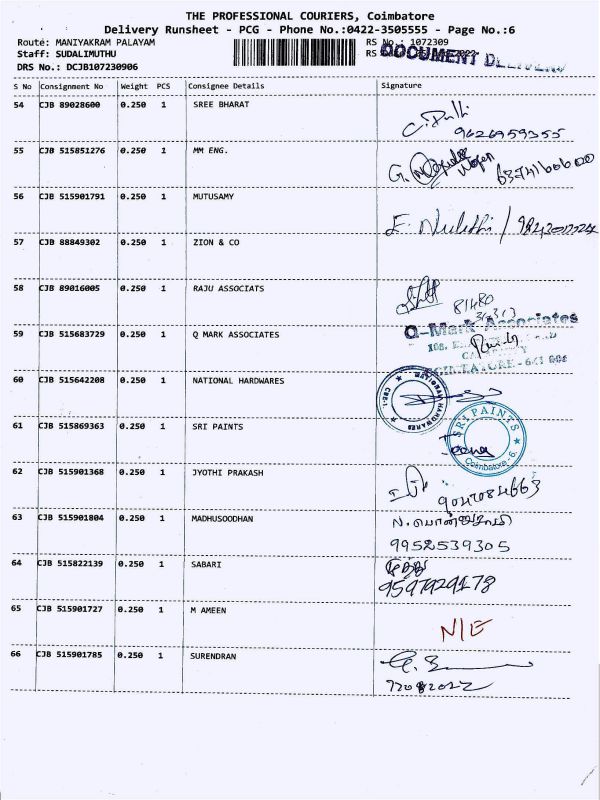 THE PROFESSIONAL COURIERS, Coimbatore
Delivery Runsheet - PCG - Phone No.:0422-3505555 - Page No.:6
Route: MANIYAKRAM PALAYAM RS No.: 1072309
Staff: SUDALIMUTHU RS DOCUMENT DELIVERY
DRS No.: DCJB107230906
S No Consignment No Weight PCS Consignee Details Signature
54 CJB 89028600 0.250 1 SREE BHARAT
9626959355
55 CJB 515851276 0.250 1 MM ENG.
6374160600
56 CJB 515901791 0.250 1 MUTUSAMY
57 CJB 88849302 0.250 1 ZION & CO
58 CJB 89016005 0.250 1 RAJU ASSOCIATS
81480
Q-Mark Associates
59 CJB 515683729 0.250 1 Q MARK ASSOCIATES
COIMBATORE - 641 006
60 CJB 515642208 0.250 1 NATIONAL HARDWARES
NATIONAL HARDWARES CBE-1
61 CJB 515869363 0.250 1 SRI PAINTS
SRI PAINTS Coimbatore - 6.
62 CJB 515901368 0.250 1 JYOTHI PRAKASH
9047084663
63 CJB 515901804 0.250 1 MADHUSOODHAN
N. பொன்னுசாமி
9952539305
64 CJB 515822139 0.250 1 SABARI
முத்து
9597929178
65 CJB 515901727 0.250 1 M AMEEN
N/E
66 CJB 515901785 0.250 1 SURENDRAN